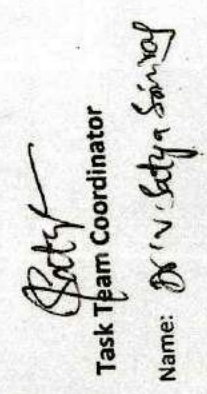 Satya
Task Team Coordinator
Name: Dr. V. Satya Sairaj